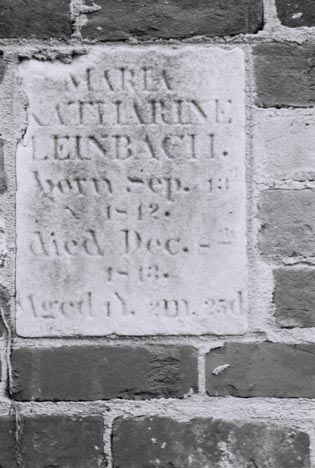 MARIA
KATHARINE
LEINBACH.
born Sep. 13th
1842.
died Dec. 8th
1843.
Aged 1Y. 2m. 25d